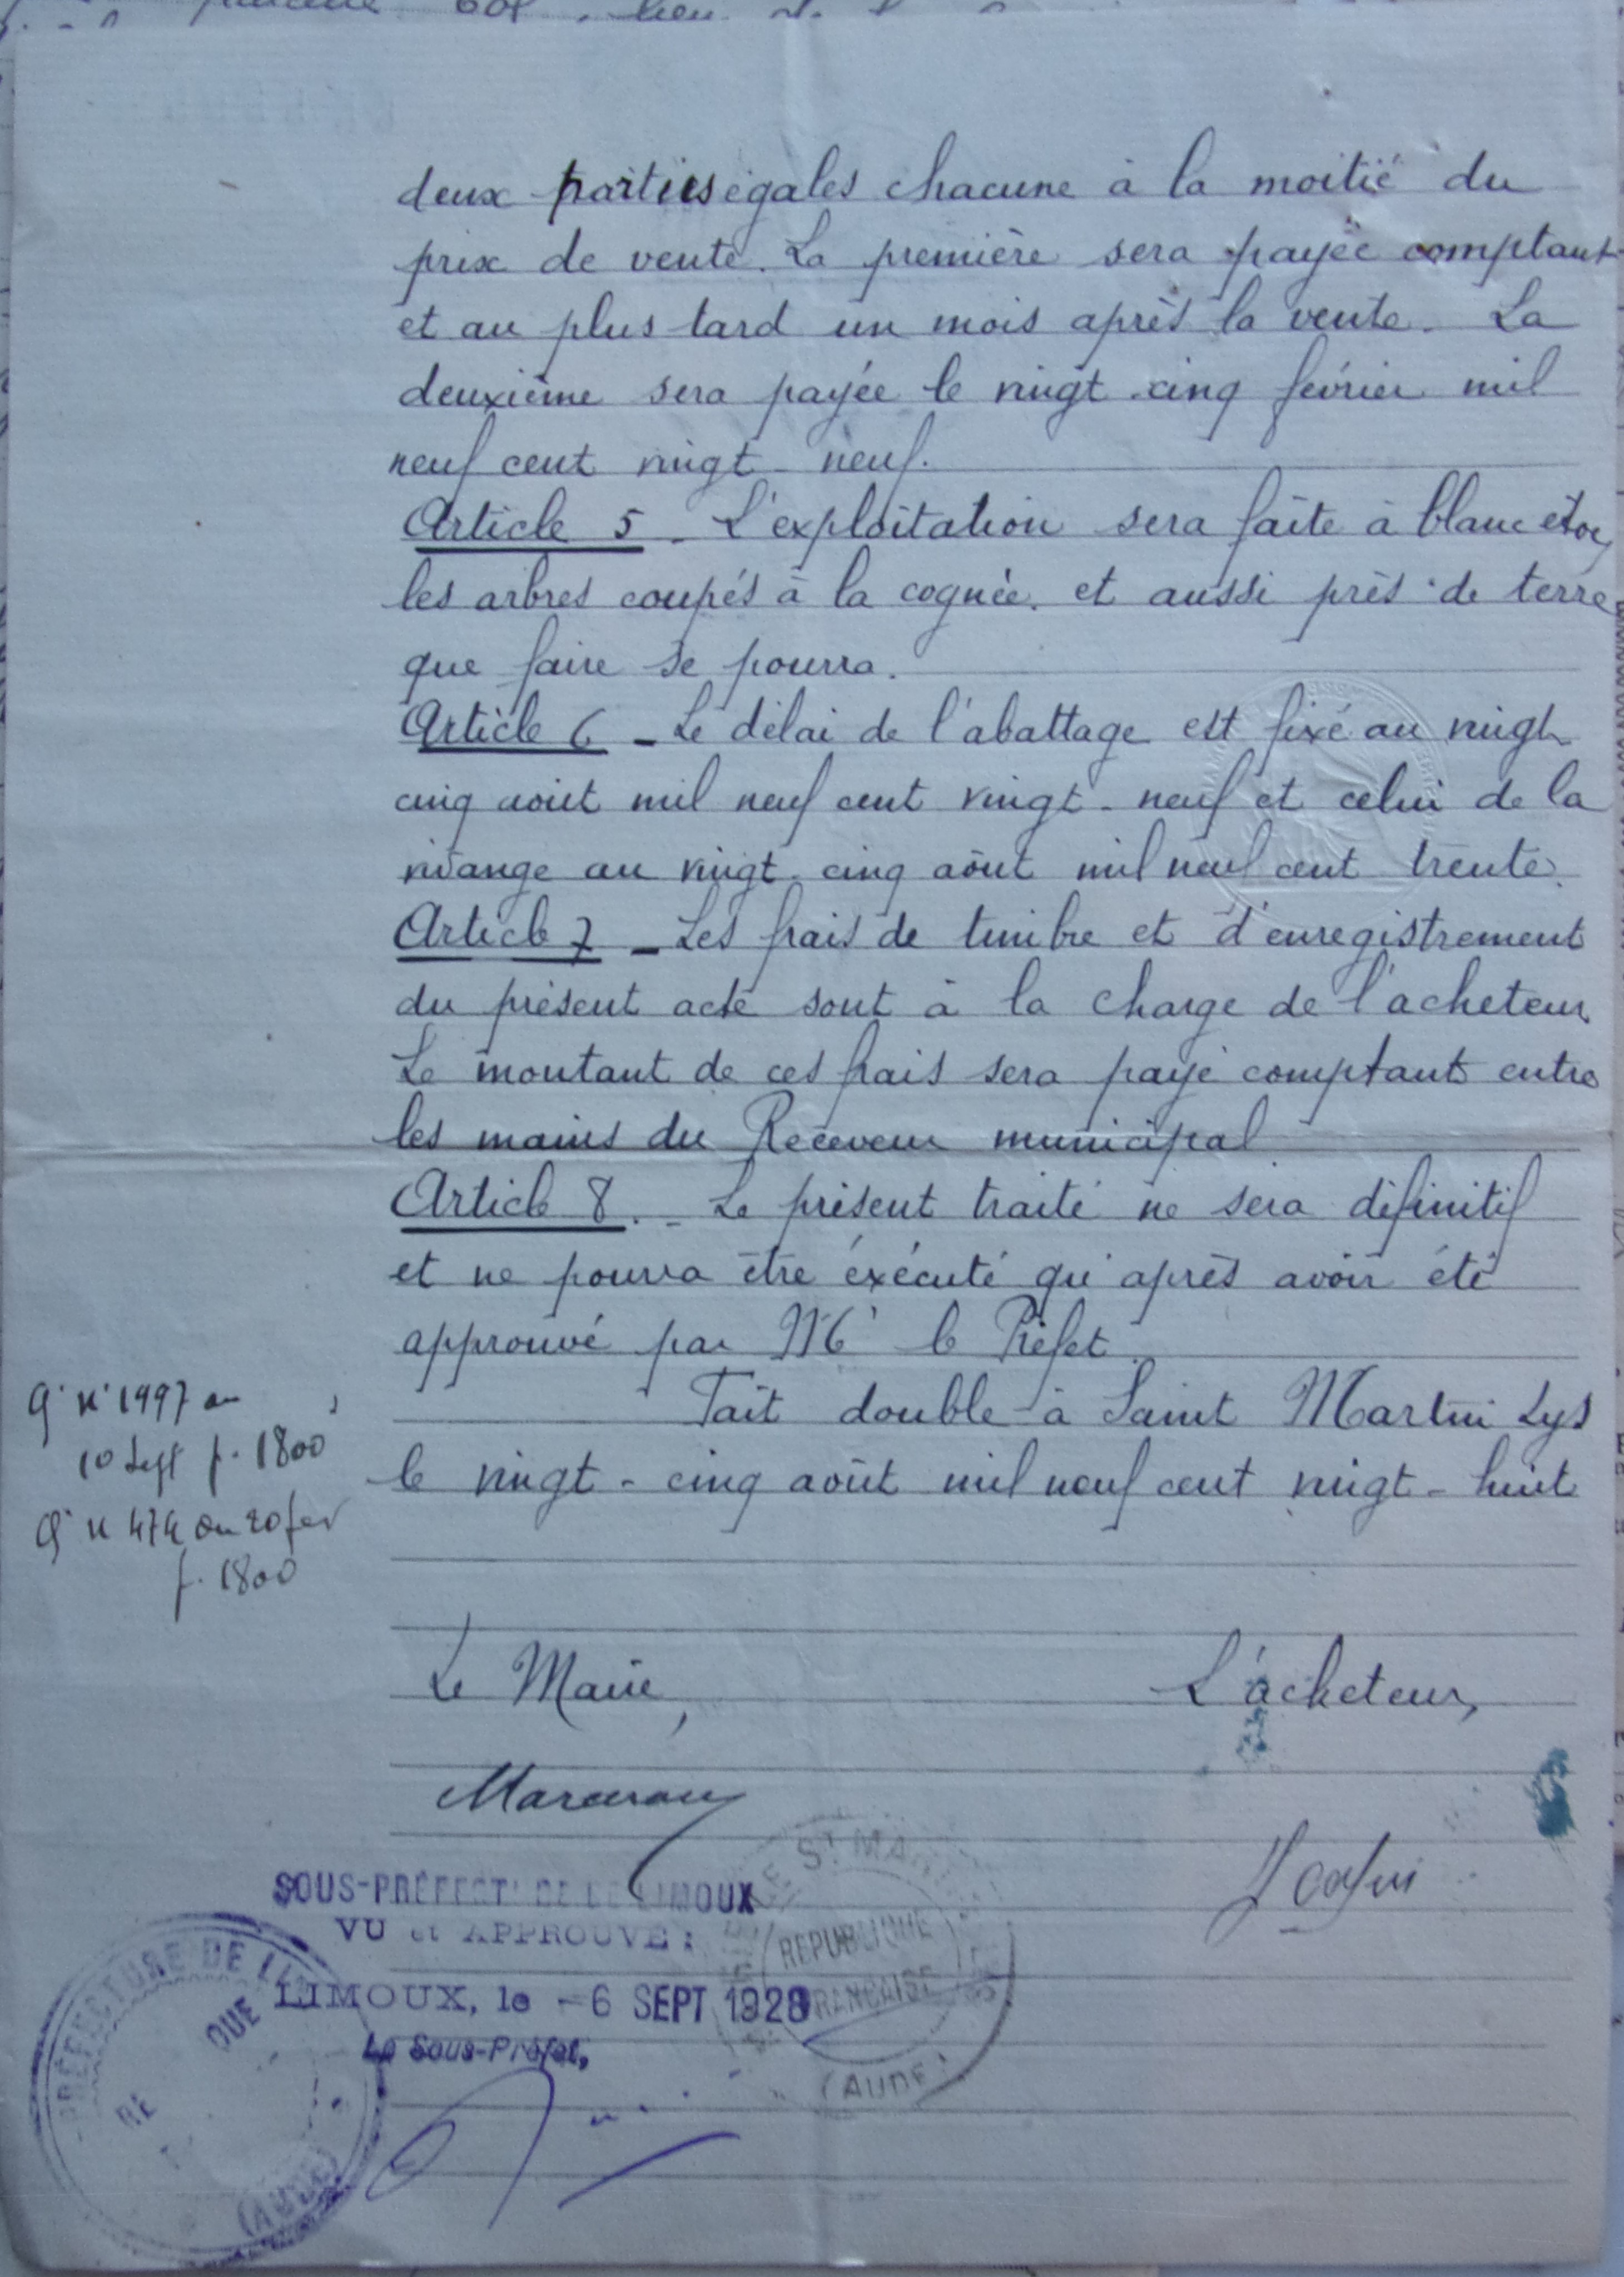 deux parties égales chacune à la moitié du
prix de vente. La première sera payée comptant
et au plus tard un mois après la vente. La
deuxième sera payée le vingt-cinq février mil
neuf cent vingt-neuf.
Article 5 - L'exploitation sera faite à blanc étoc,
les arbres coupés à la cognée. et aussi près de terre
que faire se pourra.
Article 6 - Le délai de l'abattage est fixé au vingt-
cinq août mil neuf cent vingt-neuf et celui de la
vidange au vingt-cinq août mil neuf cent trente.
Article 7 - Les frais de timbre et d'enregistrement
du présent acte sont à la charge de l'acheteur.
Le montant de ces frais sera payé comptant entre
les mains du Receveur municipal
Article 8. - Le présent traité ne sera définitif
et ne pourra être éxécuté qu'après avoir été
approuvé par Mr le Préfet.
Fait double à Saint Martin Lys
le vingt-cinq août mil neuf cent vingt-huit
Q. N° 1997 du
10 Sept f. 1800
Q. N 474 du 20 fev
f. 1800
Le Maire, L'acheteur,
SOUS-PRÉFECT. DE LIMOUX
VU et APPROUVÉ :
LIMOUX, le -6 SEPT 1928
Le Sous-Préfet,
ST MAR
RÉPUBLIQUE
FRANÇAISE
(AUDE)
PRÉFECTURE DE LI
RE QUE
(AUDE)